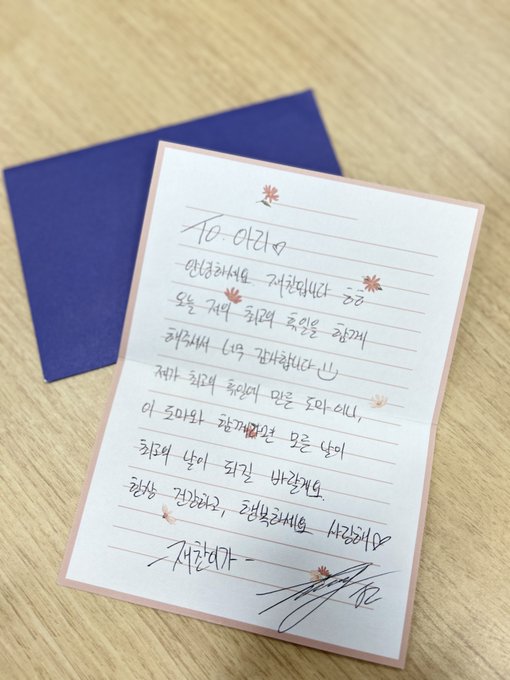 To. 아리♡
안녕하세요. 재찬입니다 ㅎㅎ
오늘 저의 최고의 휴일을 함께
해주셔서 너무 감사합니다
제가 최고의 휴일에 만든 도마이니,
이 도마와 함께라면 모든 날이
최고의 날이 되길 바랄게요.
항상 건강하고, 행복하세요 사랑해♡
재찬이가 -